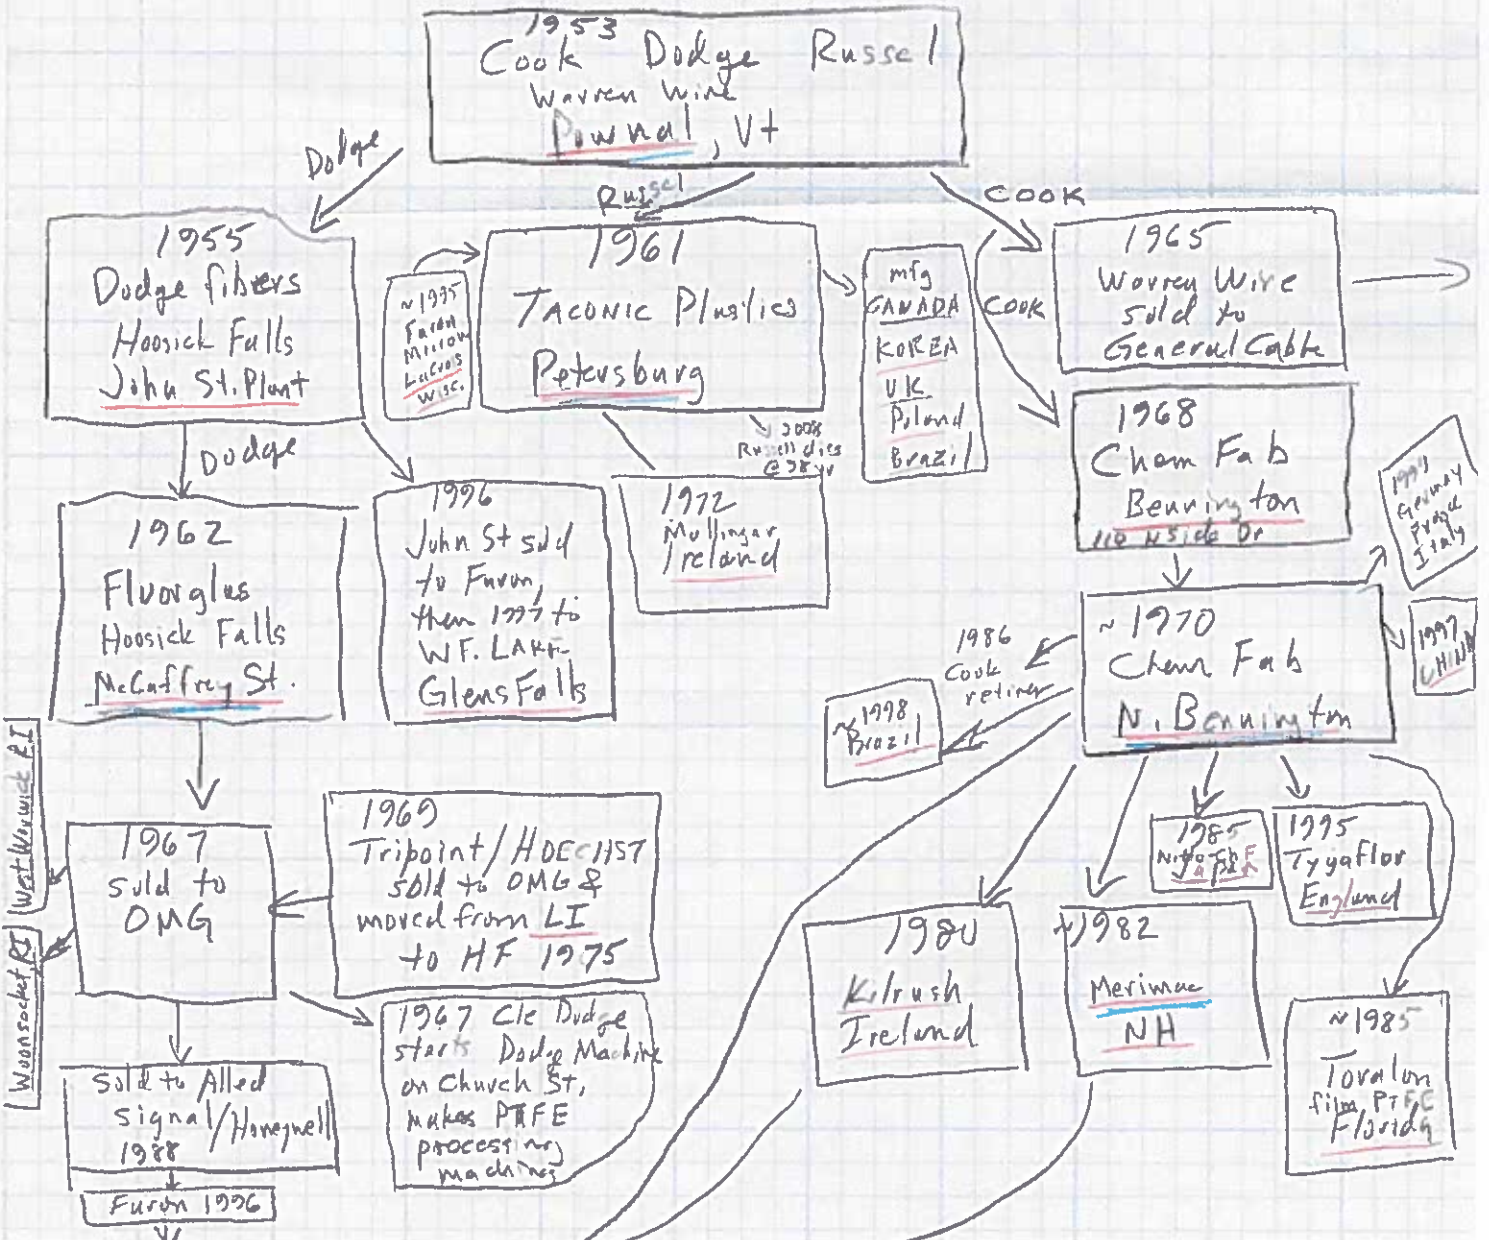 1953
Cook Dodge Russel
Warren Wire
Pownal, Vt
Dodge
Russel
COOK
1955
Dodge fibers
Hoosick Falls
John St. Plant
~1995
Furon
Micron
LaCrois
Wisc.
1961
TACONIC Plastics
Petersburg
mfg
CANADA
KOREA
UK
Poland
Brazil
COOK
1965
Warren Wire
sold to
General Cable
2008
Russell dies
@ 98 yr
1968
Chem Fab
Bennington
Dodge
1962
Fluorglas
Hoosick Falls
McCaffrey St.
1996
John St sold
to Furon,
then 1997 to
W.F. LAKE
Glens Falls
1972
Mullingar
Ireland
Germany
Italy
1997
CHINA
~1970
Chem Fab
N. Bennington
1986
Cook
retires
~1998
Brazil
West Warwick RI
Woonsocket RI
1967
sold to
OMG
1969
Tripoint/HOECHST
sold to OMG &
moved from LI
to HF 1975
1985
1995
Tygaflor
England
1980
Kilrush
Ireland
~1982
Merimac
NH
~1985
Toralon
film PTFE
Florida
1967 Cle Dodge
starts Dodge Machine
on Church St,
makes PTFE
processing
machines
Sold to Allied
signal/Honeywell
1988
Furon 1996